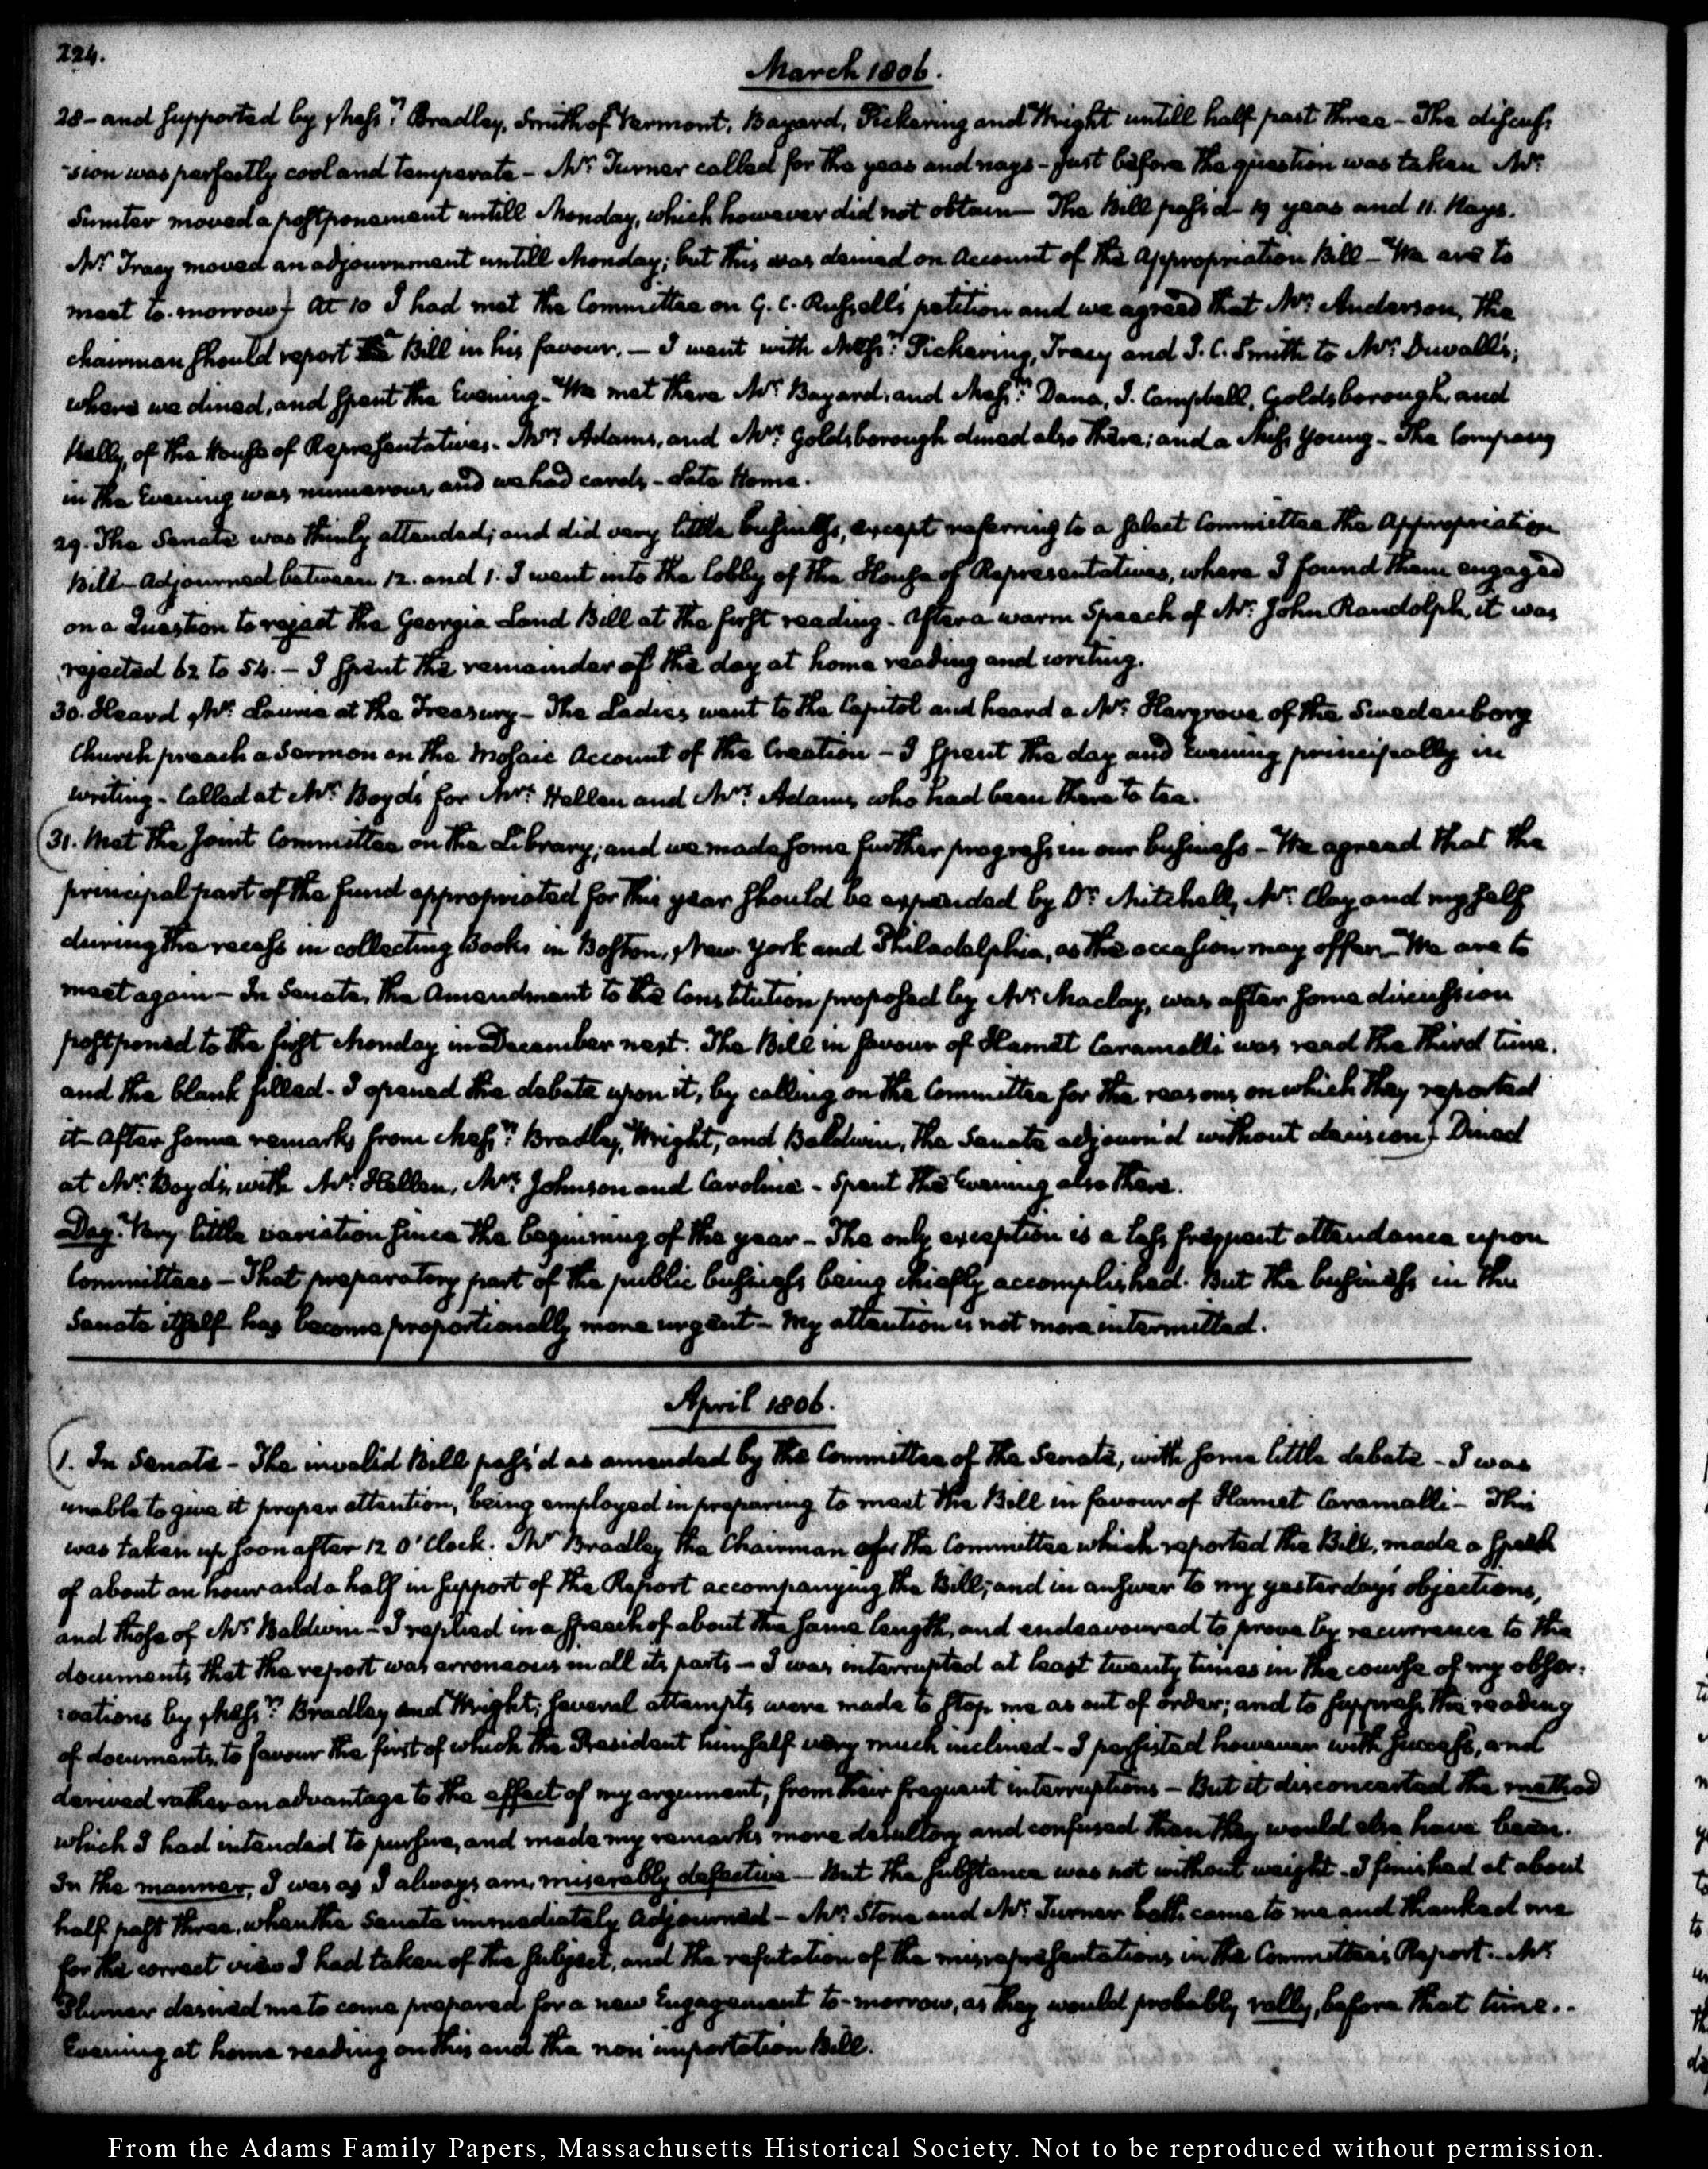 224.
March 1806.
28 - and supported by Mess.rs Bradley, Smith of Vermont, Bayard, Pickering and Wright untill half past three - The discus
-sion was perfectly cool and temperate - Mr. Turner called for the yeas and nays - just before the question was taken Mr.
Sumter moved a postponement untill Monday, which however did not obtain - The Bill pass'd 19 yeas and 11. Nays.
Mr. Tracy moved an adjournment untill Monday; but this was denied on Account of the Appropriation Bill - We are to
meet to-morrow) At 10 I had met the Committee on G. C. Russell's petition and we agreed that Mr. Anderson, the
chairman should report the Bill in his favour. - I went with Mess.rs Pickering, Tracy and J. C. Smith to Mr. Duvall's;
where we dined, and spent the Evening - We met there Mr. Bayard, and Mess.rs Dana, J. Campbell, Goldsborough, and
Kelly, of the House of Representatives. Mrs. Adams, and Mrs. Goldsborough dined also there; and a Miss Young - The Company
in the Evening was numerous, and we had cards - Late Home.
29. The Senate was thinly attended; and did very little business, except referring to a select Committee the Appropriation
Bill - Adjourned between 12. and 1. I went into the lobby of the House of Representatives, where I found them engaged
on a Question to reject the Georgia Land Bill at the first reading. After a warm Speech of Mr. John Randolph, it was
rejected 62 to 54. - I spent the remainder of the day at home reading and writing.
30. Heard Mr. Laurie at the Treasury - The Ladies went to the Capitol and heard a Mr. Hargrove of the Swedenborg
Church preach a Sermon on the Mosaic Account of the Creation - I spent the day and Evening principally in
writing - Called at Mr. Boyd's for Mrs. Hellen and Mrs. Adams, who had been there to tea.
(31. Met the Joint Committee on the Library; and we made some further progress in our business - We agreed that the
principal part of the fund appropriated for this year should be expended by Dr. Mitchell, Mr. Clay and myself
during the recess in collecting Books in Boston, New York and Philadelphia, as the occasion may offer - We are to
meet again - In Senate, the Amendment to the Constitution proposed by Mr. Maclay, was after some discussion
postponed to the first Monday in December next. The Bill in favour of Hamet Caramalli was read the third time.
and the blank filled. I opened the debate upon it, by calling on the Committee for the reasons on which they reported
it - After some remarks from Mess.rs Bradley, Wright, and Baldwin, the Senate adjourn'd without decision) Dined
at Mr. Boyd's, with Mr. Hellen, Mrs. Johnson and Caroline - Spent the Evening also there.
Day. Very little variation since the beginning of the year - The only exception is a less frequent attendance upon
Committees - That preparatory part of the public business being chiefly accomplished. But the business in the
Senate itself has become proportionally more urgent - My attention is not more intermitted.
April 1806.
(1. In Senate - The invalid Bill pass'd as amended by the Committee of the Senate, with some little debate - I was
unable to give it proper attention, being employed in preparing to meet the Bill in favour of Hamet Caramalli - This
was taken up soon after 12 O'Clock. Mr. Bradley the Chairman of the Committee which reported the Bill, made a speech
of about an hour and a half in support of the Report accompanying the Bill; and in answer to my yesterday's objections,
and those of Mr. Baldwin - I replied in a speech of about the same length, and endeavoured to prove by recurrence to the
documents that the report was erroneous in all its parts - I was interrupted at least twenty times in the course of my obser-
vations by Mess.rs Bradley and Wright; several attempts were made to stop me as out of order; and to suppress the reading
of documents, to favour the first of which the President himself very much inclined - I persisted however with success, and
derived rather an advantage to the effect of my argument, from their frequent interruptions - But it disconcerted the method
which I had intended to pursue, and made my remarks more desultory and confused than they would else have been.
In the manner, I was as I always am, miserably defective - But the substance was not without weight - I finished at about
half past three, when the Senate immediately Adjourned - Mr. Stone and Mr. Turner both came to me and thanked me
for the correct view I had taken of the subject, and the refutation of the misrepresentations in the Committee's Report. Mr.
Plumer desired me to come prepared for a new Engagement to-morrow, as they would probably rally, before that time. -
Evening at home reading on this and the non importation Bill.
From the Adams Family Papers, Massachusetts Historical Society. Not to be reproduced without permission.